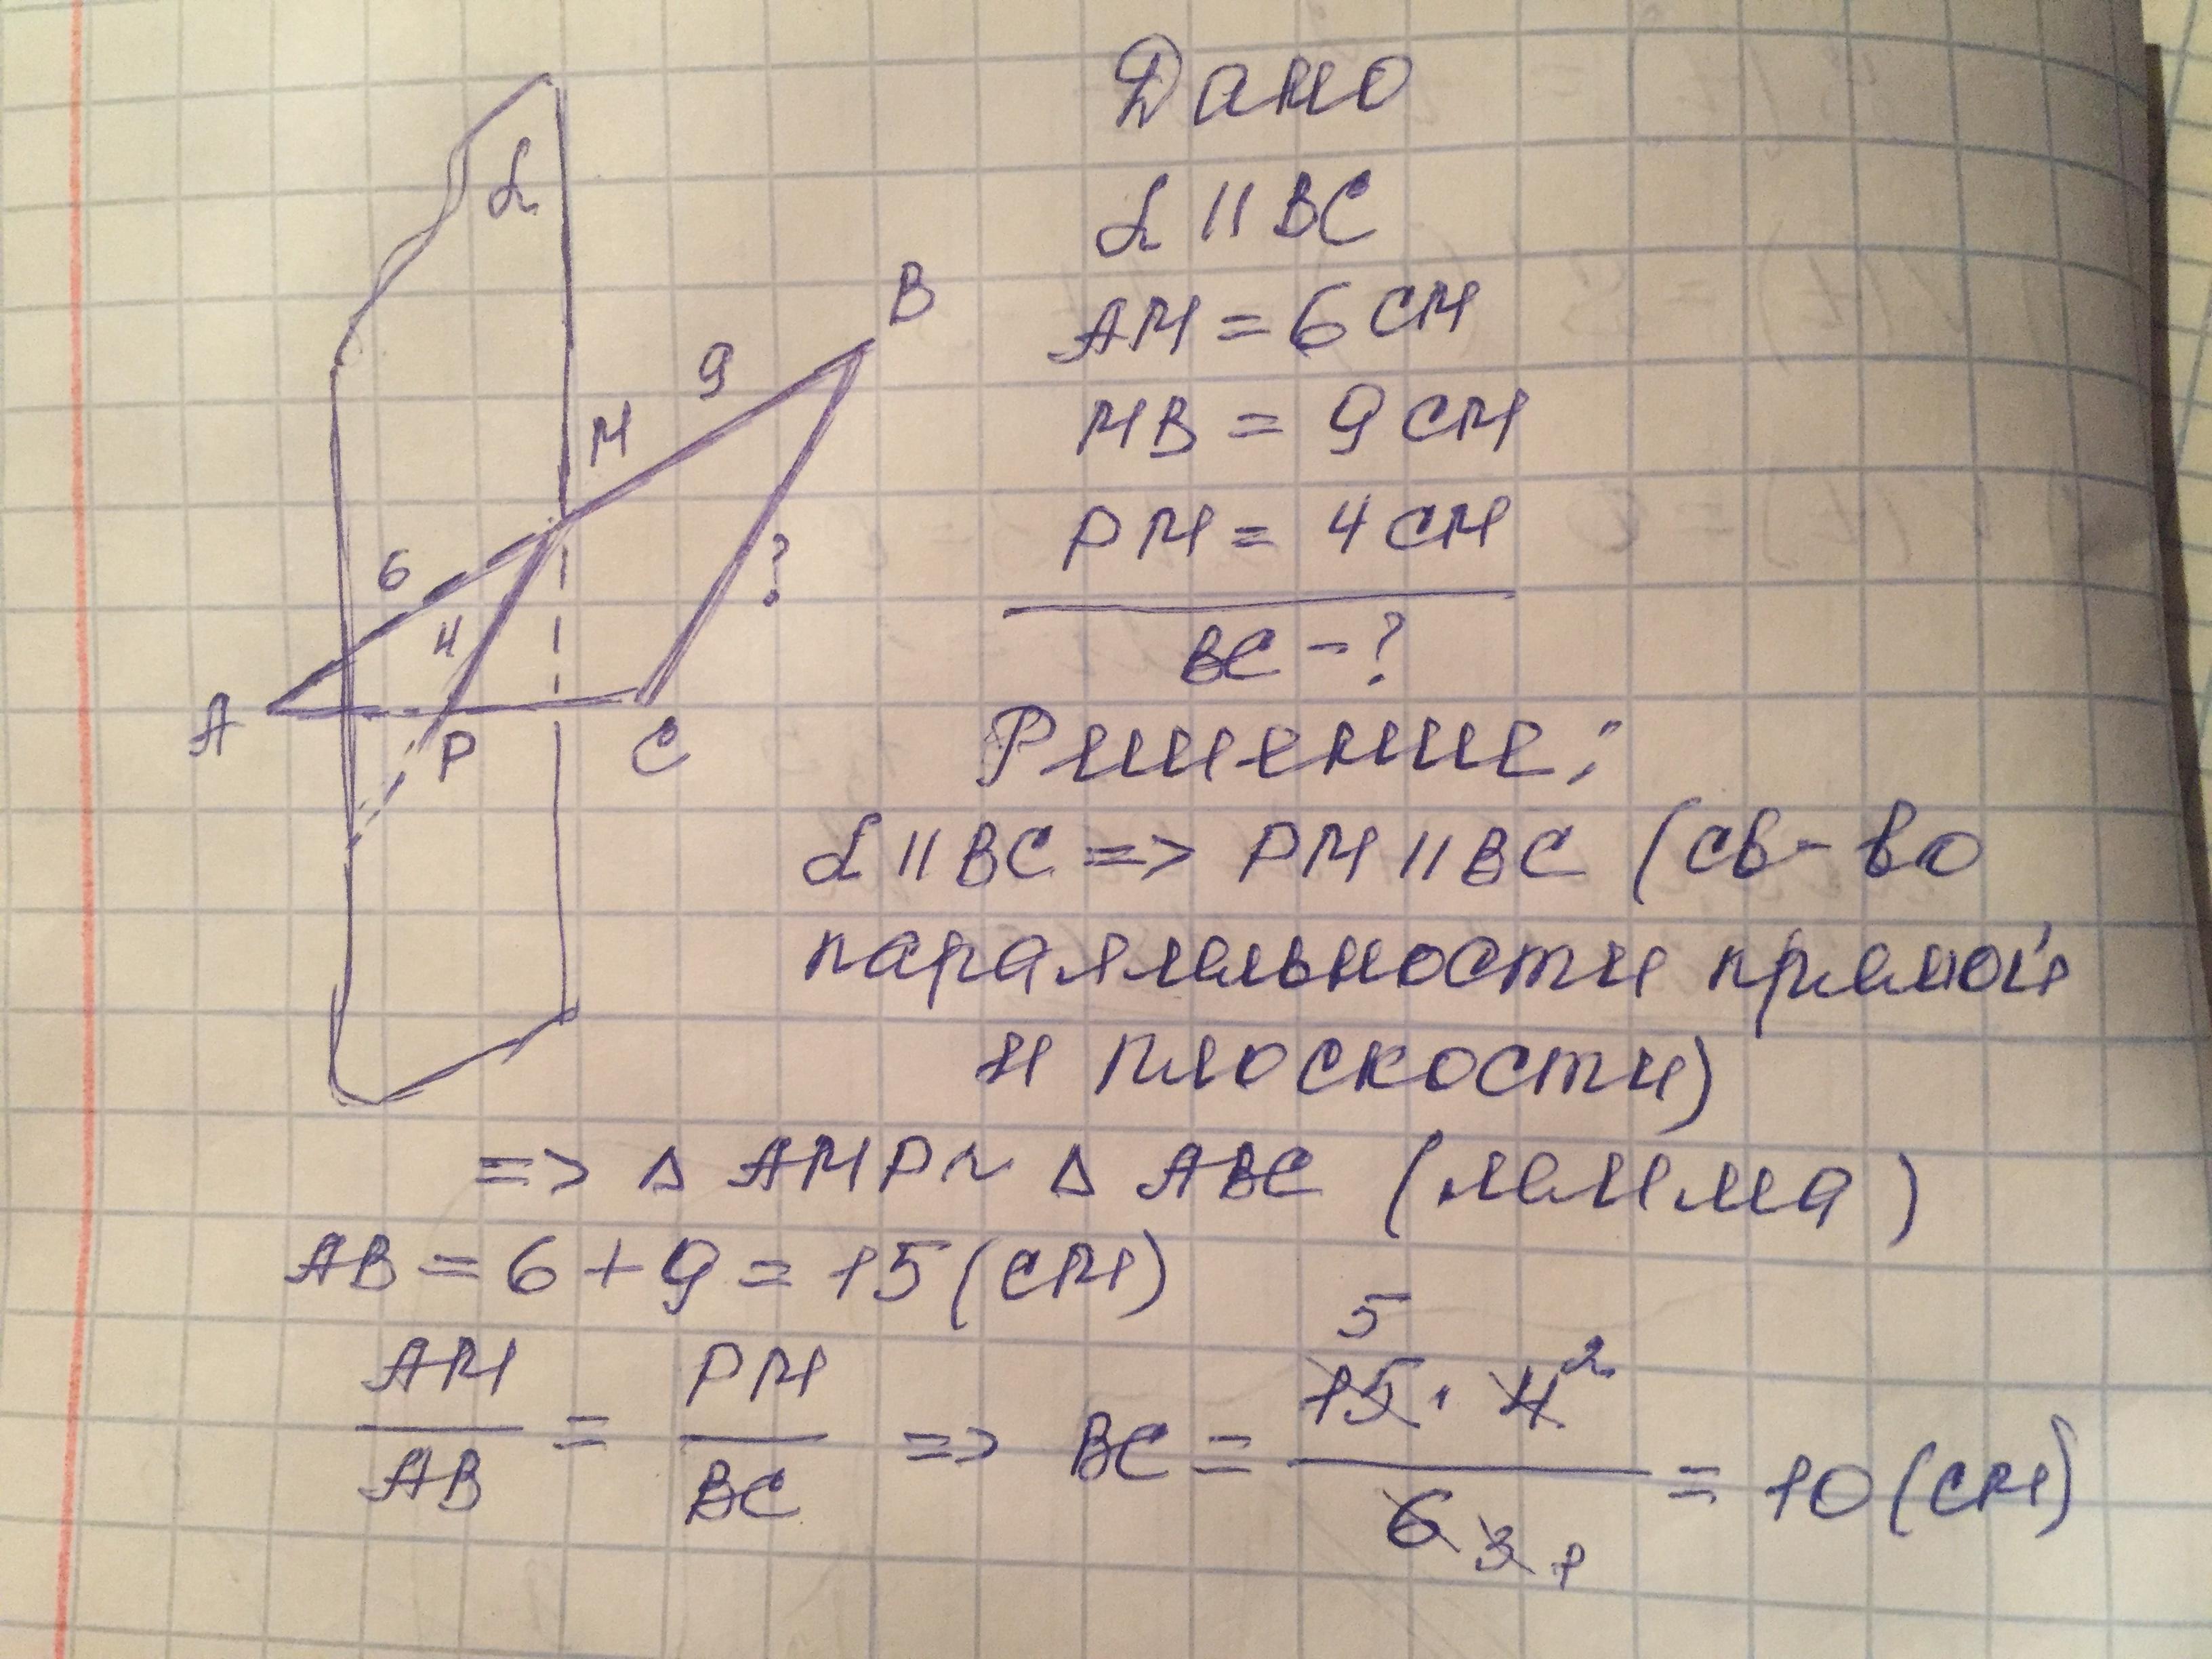 Дано
α || BC
AM = 6 см
MB = 9 см
PM = 4 см
BC - ?
α
B
9
M
6
4
?
A
P
C
Решение:
α || BC => PM || BC (св-во
параллельности прямой
и плоскости)
=> Δ AMP ~ Δ ABC (лемма)
AB = 6 + 9 = 15 (см)
AM/AB = PM/BC => BC = 15 5 · 4 2 / 6 3 1 = 10 (см)